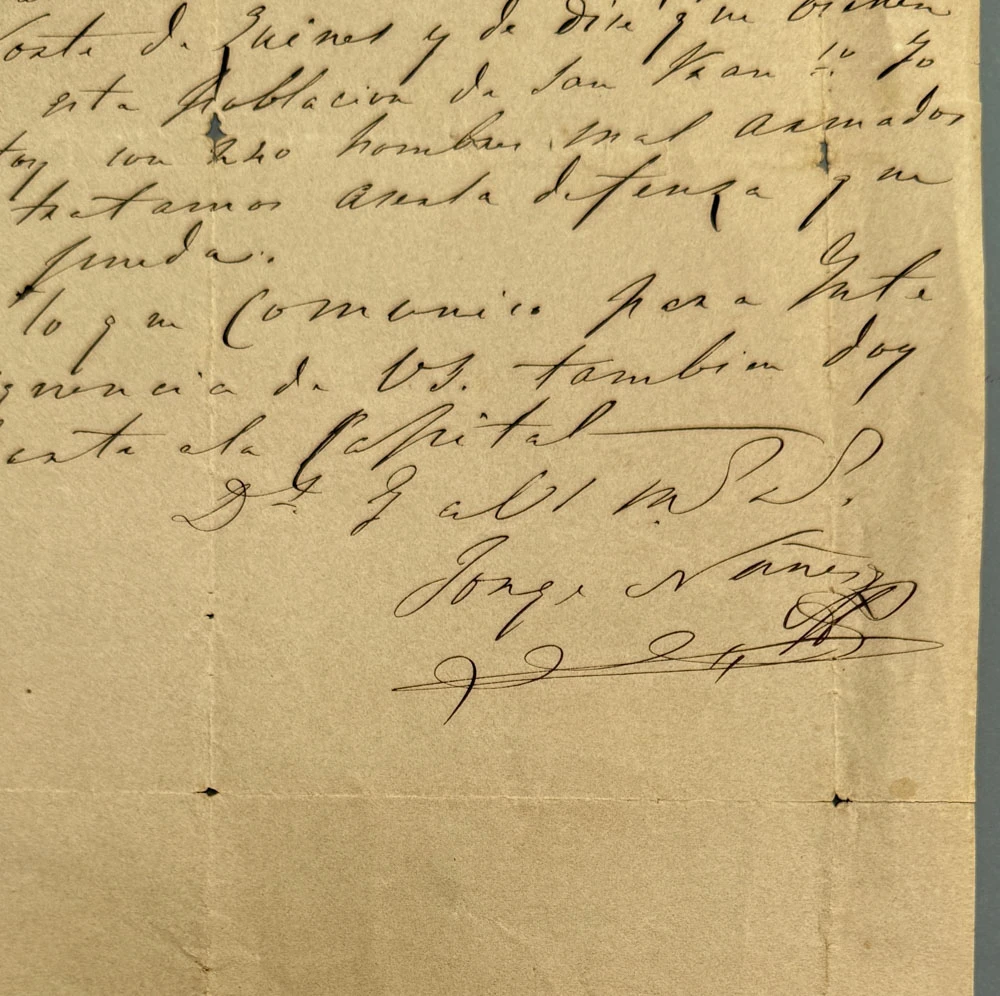 de Guines y de dise que bienen
esta poblacion de San Fran.co Yo
toy con 220 hombres mal armados
tratamos aserla defenza que
pueda.
lo que Comunico para Inte
quencia de VS. tambien doy
ala Capital
D.s G a VS M. S.
Jorge Nuñez